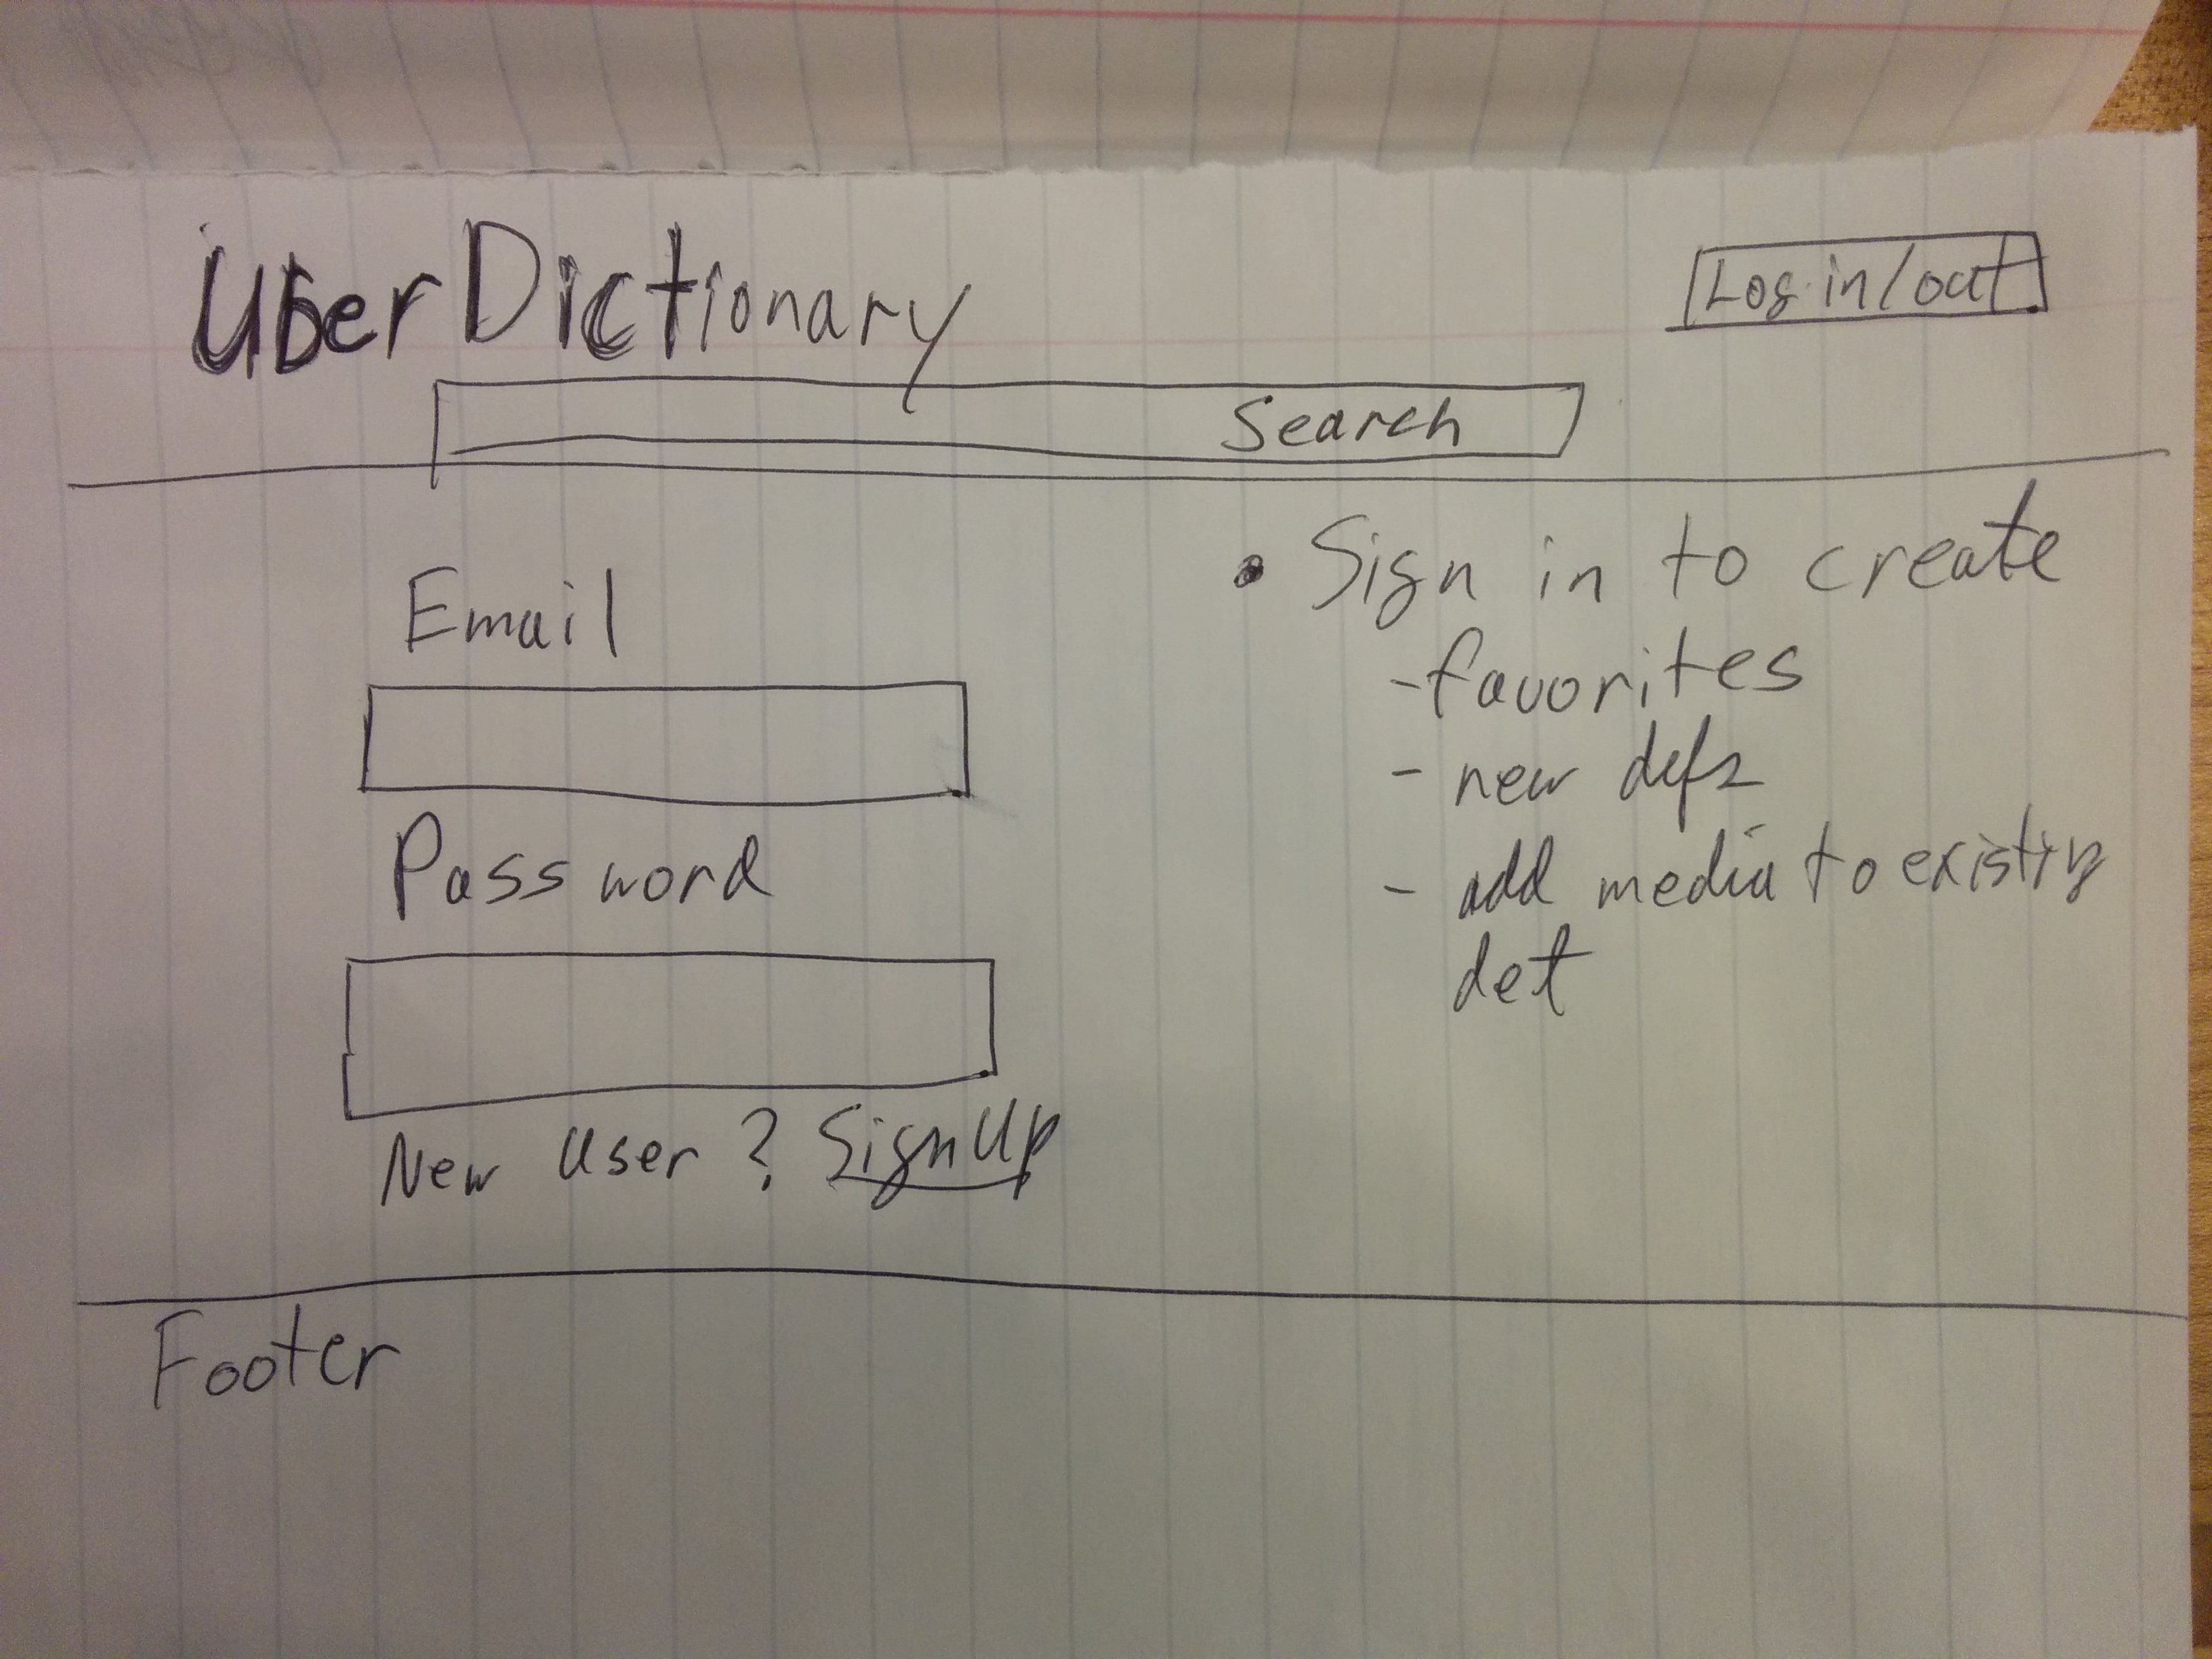 UberDictionary
Log in/out
Search
Email
Password
New user? SignUp
• Sign in to create
- favorites
- new defs
- add media to existing
def
Footer